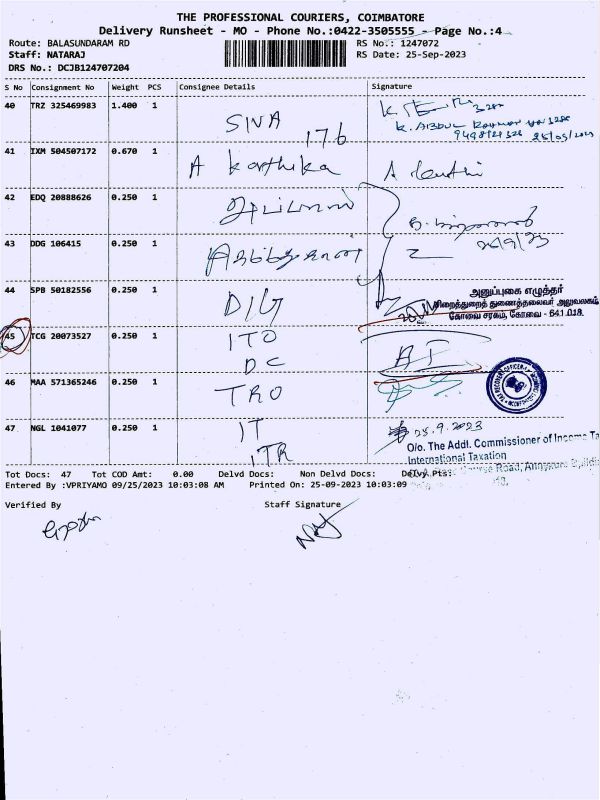 THE PROFESSIONAL COURIERS, COIMBATORE
Delivery Runsheet - MO - Phone No.:0422-3505555 - Page No.:4
Route: BALASUNDARAM RD RS No.: 1247072
Staff: NATARAJ RS Date: 25-Sep-2023
DRS No.: DCJB124707204
S No Consignment No Weight PCS Consignee Details Signature
40 TRZ 325469983 1.400 1
SIVA 176
25/09/2023
41 IXM 504507172 0.670 1 A karthika
42 EDQ 20888626 0.250 1
43 DDG 106415 0.250 1
25/9/23
44 SPB 50182556 0.250 1 DIG
அனுப்புகை எழுத்தர்
சிறைத்துறைத் துணைத்தலைவர் அலுவலகம்
கோவை சரகம், கோவை - 641 018.
45 TCG 20073527 0.250 1 ITO
DC
46 MAA 571365246 0.250 1 TRO
47 NGL 1041077 0.250 1 IT
ITR
25.9.2023
O/o. The Addl. Commissioner of Income Ta
International Taxation
Course Road,
Tot Docs: 47 Tot COD Amt: 0.00 Delvd Docs: Non Delvd Docs: Delvd Pts:
Entered By :VPRIYAMO 09/25/2023 10:03:08 AM Printed On: 25-09-2023 10:03:09
Verified By Staff Signature